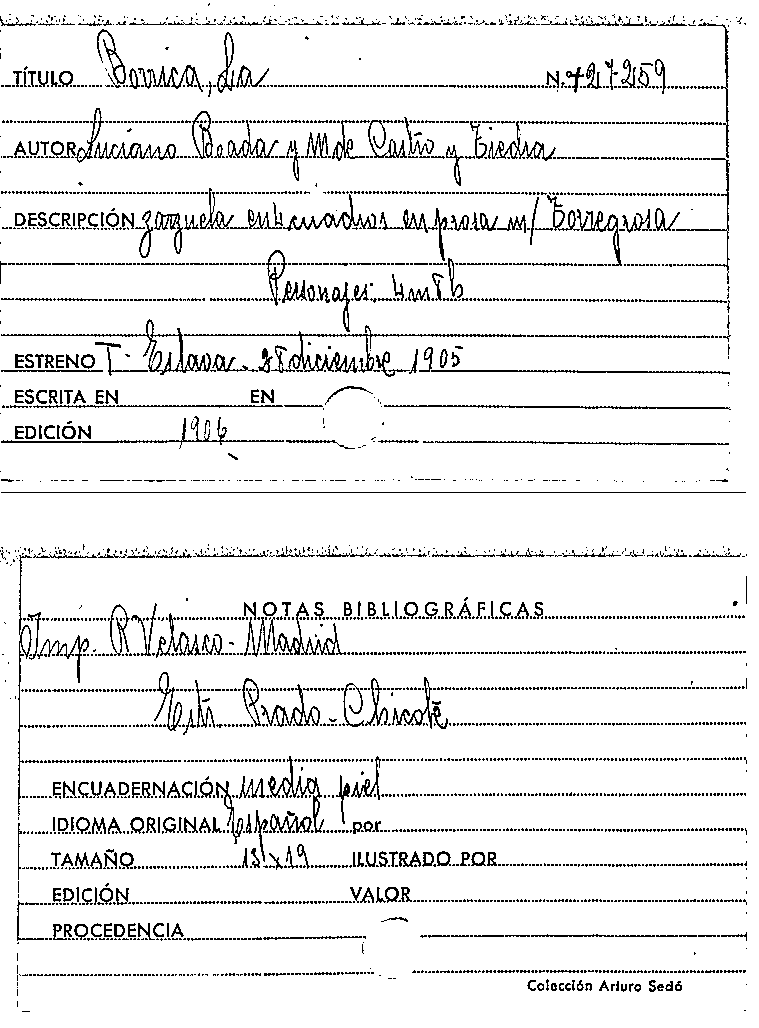 TÍTULO Borrica, La N. 727259
AUTOR Luciano Boada y M de Castro y Tiedra
DESCRIPCIÓN zarzuela en 4 cuadros en prosa m/ Torregrosa
Personajes: 4m 8h
ESTRENO T. Eslava. 28 diciembre 1905
ESCRITA EN EN
EDICIÓN 1906
NOTAS BIBLIOGRÁFICAS
Imp. R Velasco - Madrid
Estr. Prado - Chicote
ENCUADERNACIÓN media piel
IDIOMA ORIGINAL Español por
TAMAÑO 13 x 19 ILUSTRADO POR
EDICIÓN VALOR
PROCEDENCIA
Colección Arturo Sedó